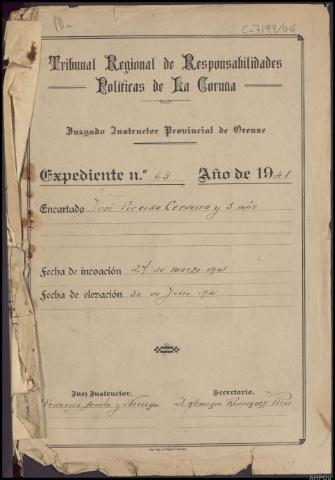 C-7199/06
Tribunal Regional de Responsabilidades
Políticas de La Coruña
Juzgado Instructor Provincial de Orense
Expediente n.º 63 Año de 1941
Encartado José y 3 más
Fecha de incoación 27 de marzo 1941
Fecha de elevación 30 de Julio 1941
Juez Instructor, Secretario,
Federico Acosta y Noriega D. Remigio Rodríguez
AHPOU